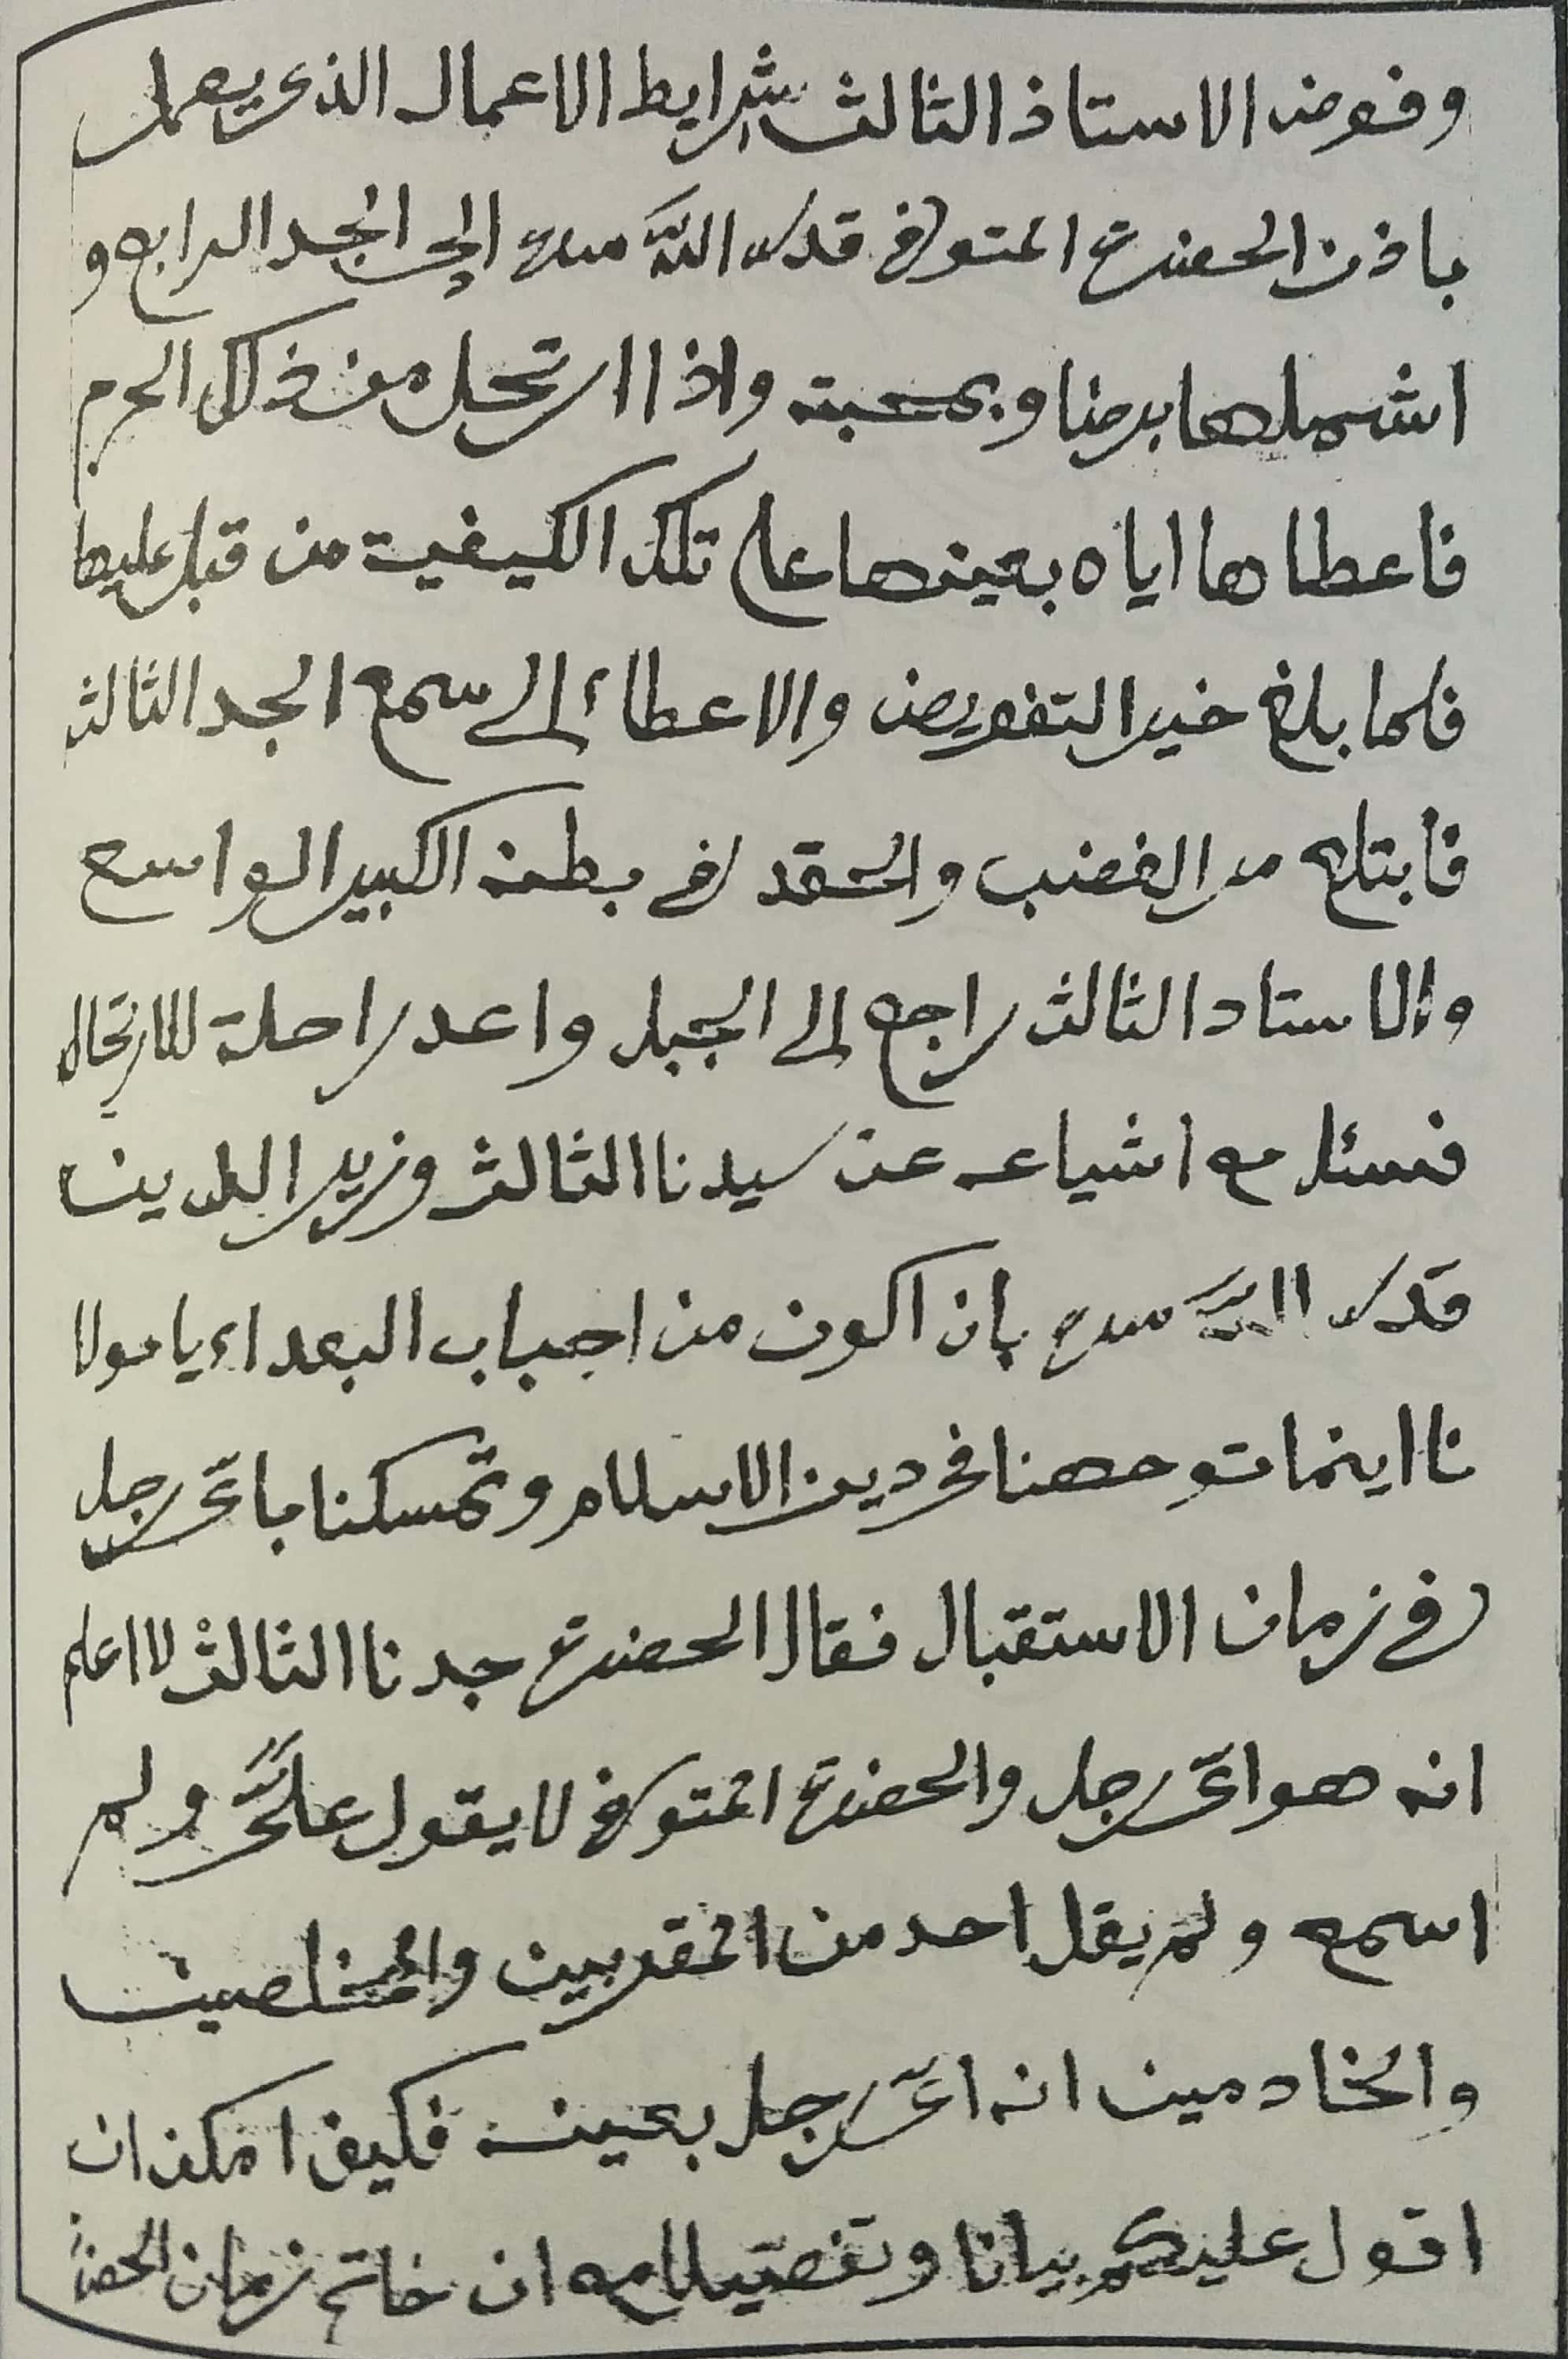 وفوض الاستاذ الثالث شرايط الاعمال الذى يعمل
باذن الحضرة المتوفى قدس الله سره الى الجد الرابع و
اشملها برضا وبمحبته واذا ارتحل من ذلك الحرم
فاعطاها اياه بعينها على تلك الكيفية من قبل عليها
فلما بلغ خبر التفويض والاعطاء الى سمع الجد الثالث
فابتلع مر الغضب والحقد فى بطنه الكبير الواسع
والاستاد الثالث راجع الى الجبل واعد راحلة للارتحال
فسئل مع اشياعه عن سيدنا الثالث وزير الدين
قدس الله سره بان اكون من اجباب البعداء يا مولا
نا اينما توجهنا فى دين الاسلام وتمسكنا باىّ رجل
فى زمان الاستقبال فقال الحضرة جدنا الثالث لا اعلم
انه هو اىّ رجل والحضرة المتوفى لا يقول علىَّ ولم
اسمع ولم يقل احد من المقربين والمخلصين
والخادمين انه اىّ رجل بعينه فكيف امكن ان
اقول عليكم بيانا وتفصيلا مع ان خاتم زمان الحضرة